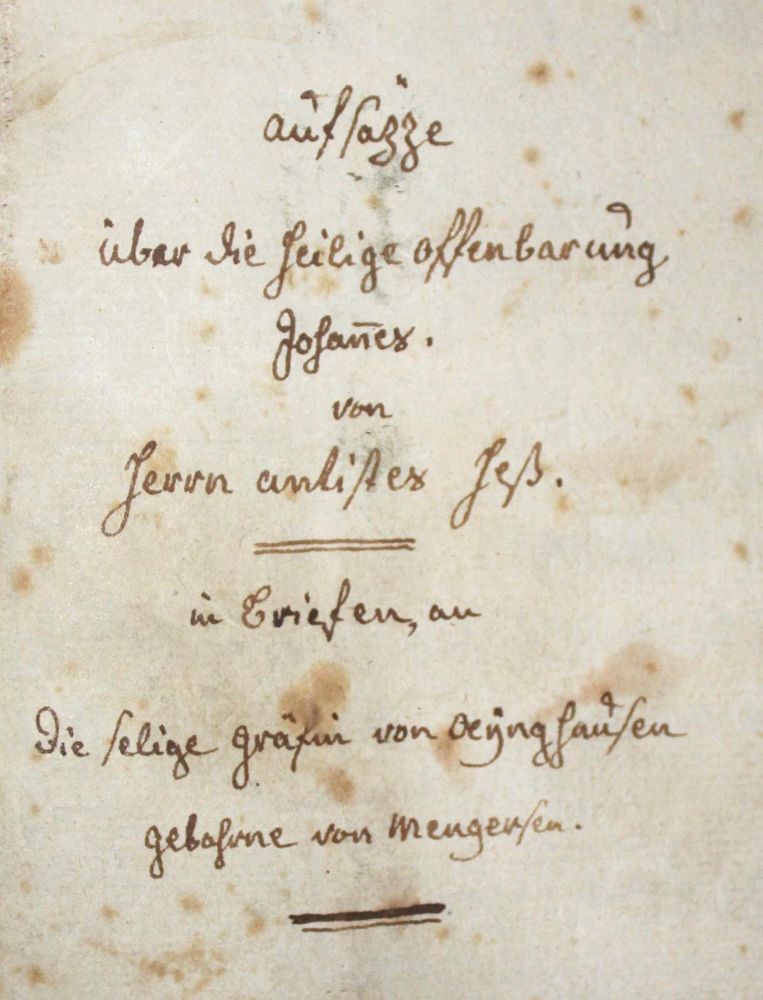 aufsäzze
über die heilige offenbarung
Johan̅es.
von
Herrn antistes Heß.
in Briefen, an
die selige gräfin von Oeÿnghausen
gebohrne von Mengersen.